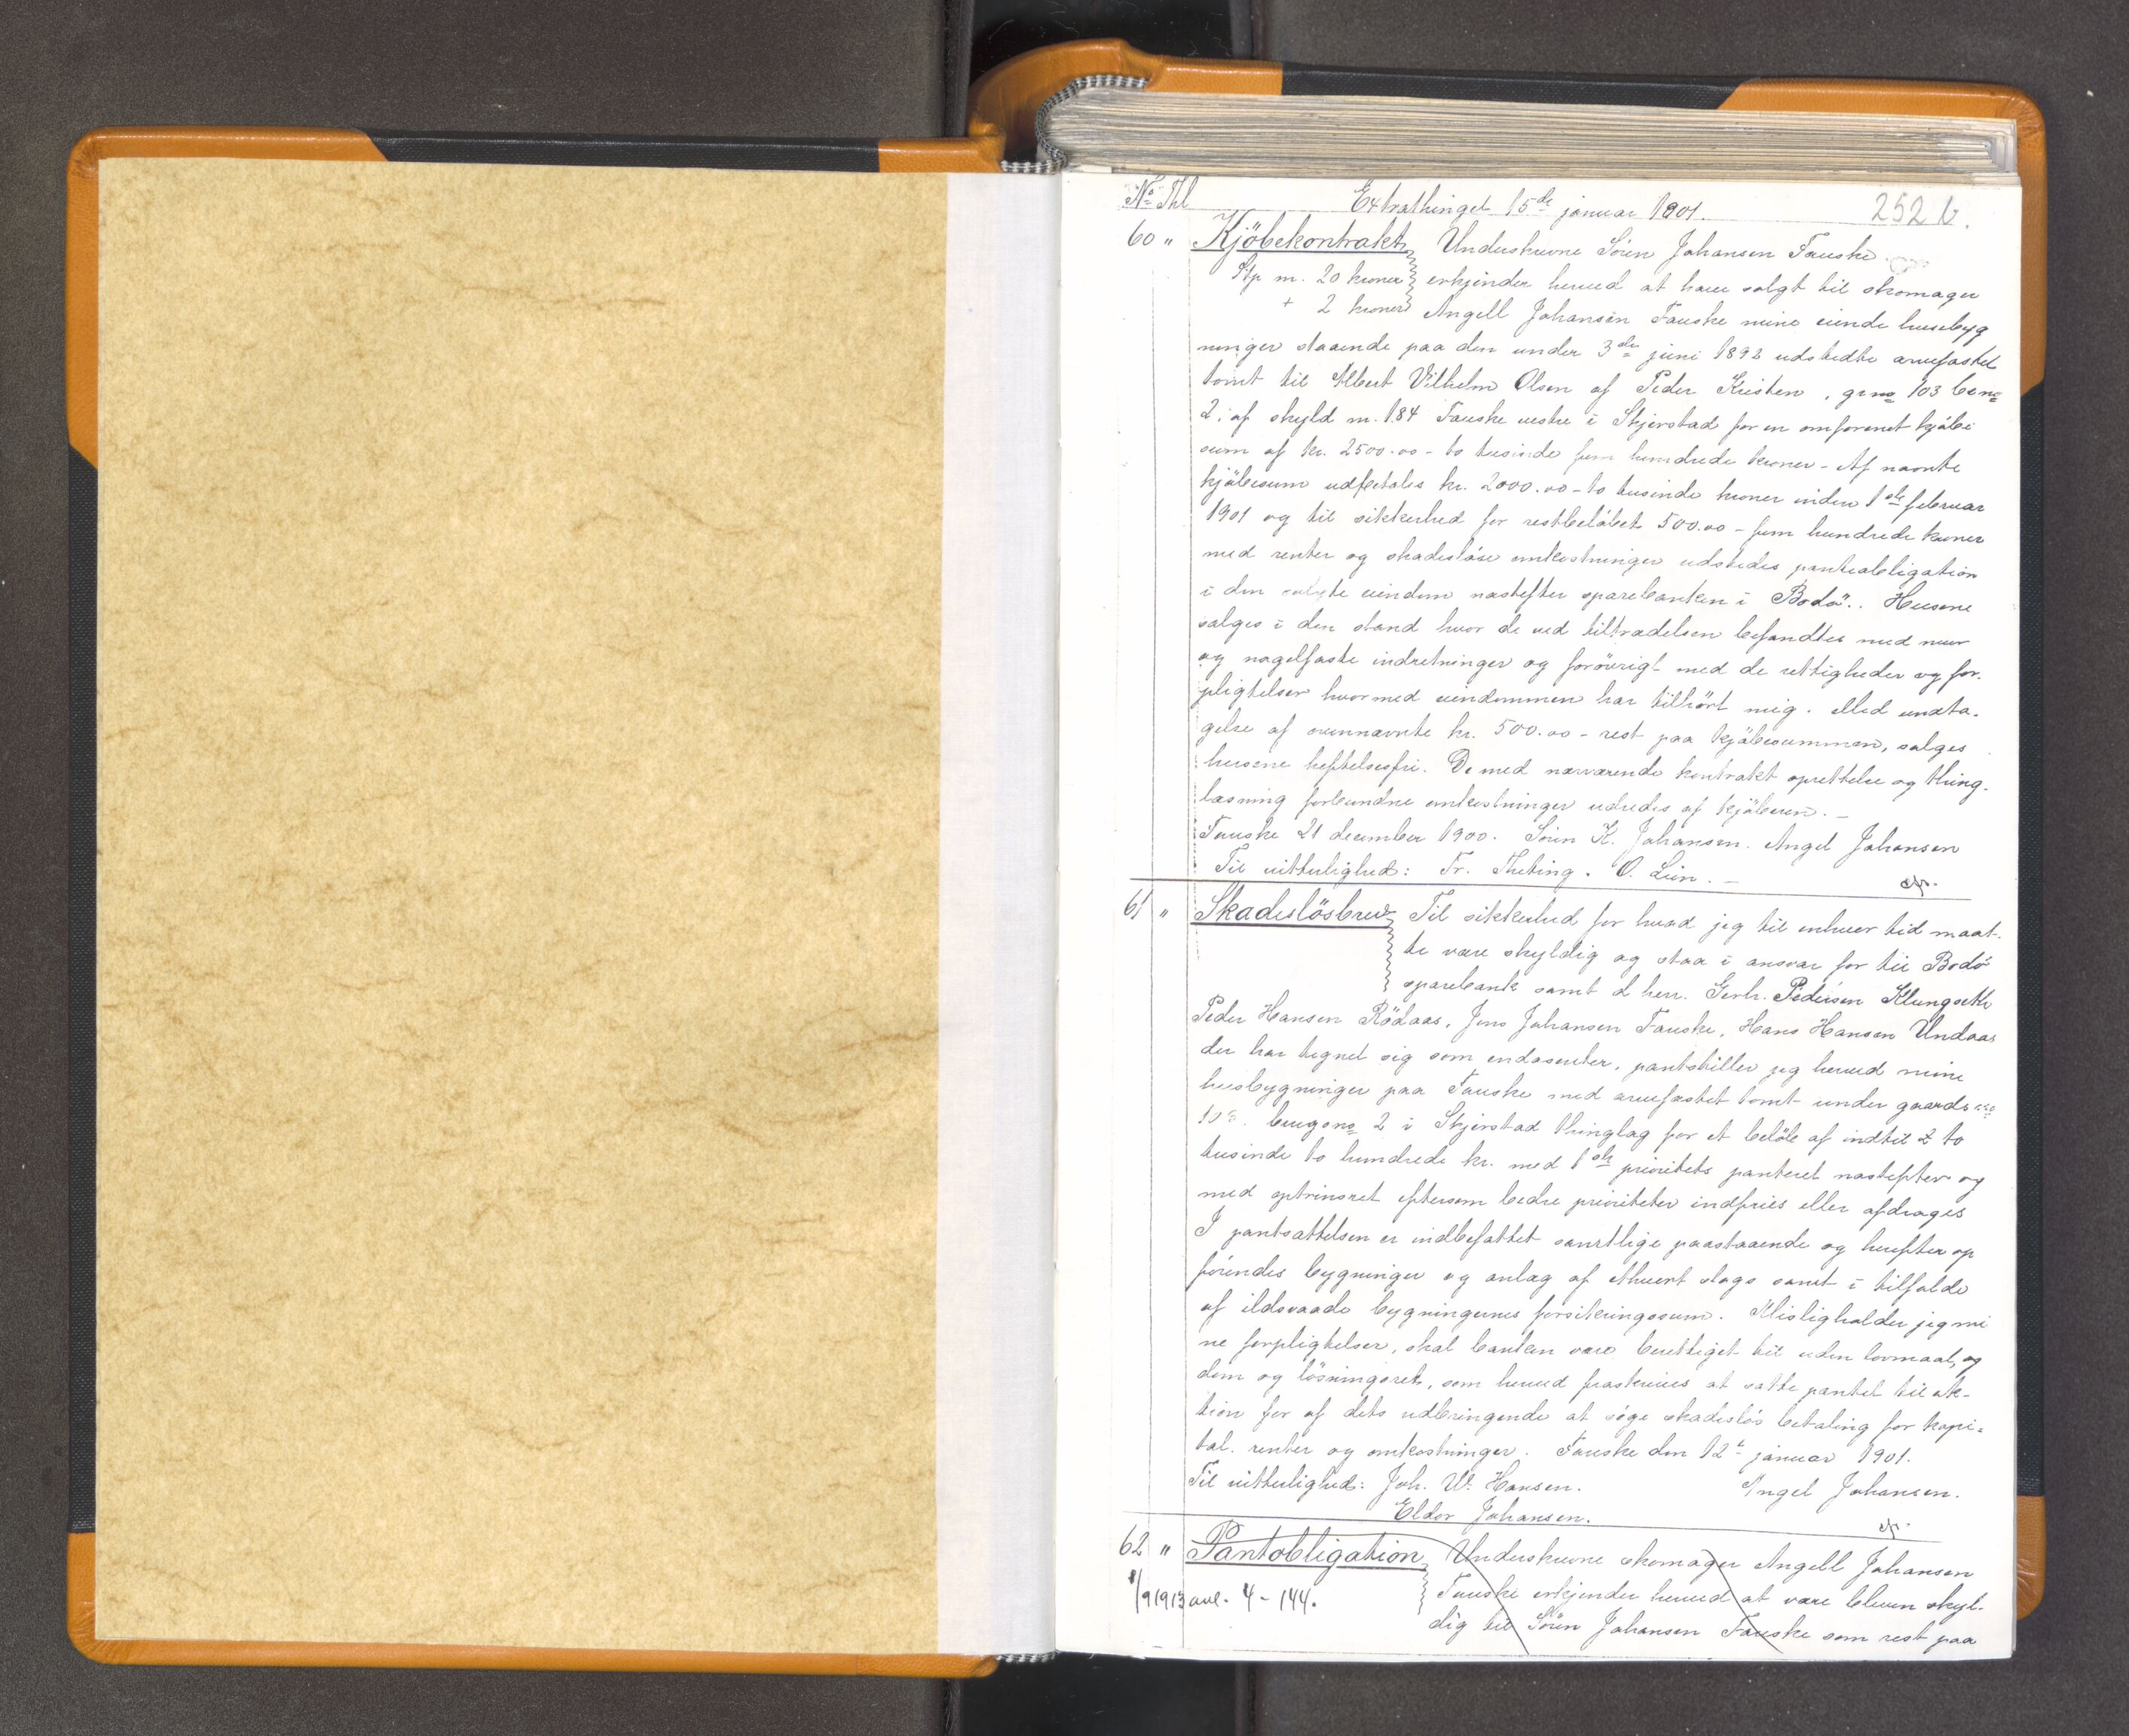 No Thl Extrathinget 15de januar 1901. 252 b.
60 " Kjöbekontrakt Underskrevne Sören Johansen Fauske
Stp m. 20 kroner erkjender herved at have solgt til skomager
+ 2 kroner Angell Johansen Fauske mine eiende husebyg
ninger staaende paa den under 3die juni 1892 udstedte arvefæstet
tomt til Albert Vilhelm Olsen af Peder Kristen , grno 103 brno
2. af skyld m. 1.84 Fauske vestre i Skjerstad for en omforenet kjöbe
sum af kr. 2500.00 - to tusinde fem hundrede kroner - Af nævnte
kjöbesum udbetales kr. 2000.00 - to tusinde kroner inden 1ste februar
1901 og til sikkerhed for restbelöbet 500.00 - fem hundrede kroner
med renter og skadeslöse omkostninger udstedes panteobligation
i den solgte eiendom næstefter sparebanken i Bodö.. Husene
sælges i den stand hvor de ved tiltrædelsen befandtes med muur
og nagelfaste indretninger og forövrigt med de rettigheder og for-
pligtelser hvormed eiendommen har tilhört mig. Med undta-
gelse af ovennævnte kr. 500.00 - rest paa kjöbesummen, sælges
husene heftelsesfri. De med nærværende kontrakt oprettelse og thing-
læsning forbundne omkostninger udredes af kjöberen. -
Fauske 21 december 1900. Sören K. Johansen. Angel Johansen
Til vitterlighed: Fr. Theting. O. Lien. -
61 " Skadeslösbrev Til sikkerhed for hvad jeg til enhver tid maat-
te være skyldig og staa i ansvar for til Bodö
sparebank samt d herr. Gerh. Pedersen Klungseth
Peder Hansen Rödaas, Jens Johansen Fauske, Hans Hansen Undaas
der har tegnet sig som endosenter, pantstiller jeg herved mine
husbygninger paa Fauske med arvefæstet tomt under gaardsno
103. brugsno 2 i Skjerstad thinglag for et belöb af indtil 2 to
tusinde to hundrede kr. med 1ste prioritets panteret næstefter og
med optrinsret eftersom bedre prioriteter indfries eller afdrages
I pantsættelsen er indbefattet samtlige paastaaende og herefter op
förendes bygninger og anlæg af ethvert slags samt i tilfælde
af ildsvaade bygningernes forsikringssum. Misligholder jeg mi
ne forpligtelser, skal banken være berettiget til uden lovmaal, og
dom og lösningsret, som herved fraskrives at sætte pantet til auk-
tion for af dets udbringende at söge skadeslös betaling for kapi-
tal. renter og omkostninger. Fauske den 12te januar 1901.
Til vitterlighed: Joh. W. Hansen. Angel Johansen.
Eldor Johansen.
62 " Pantobligation Underskrevne skomager Angell Johansen
1/9 1913 avl. 4 - 144. Fauske erkjender herved at være bleven skyl-
dig til Sören Johansen Fauske som rest paa